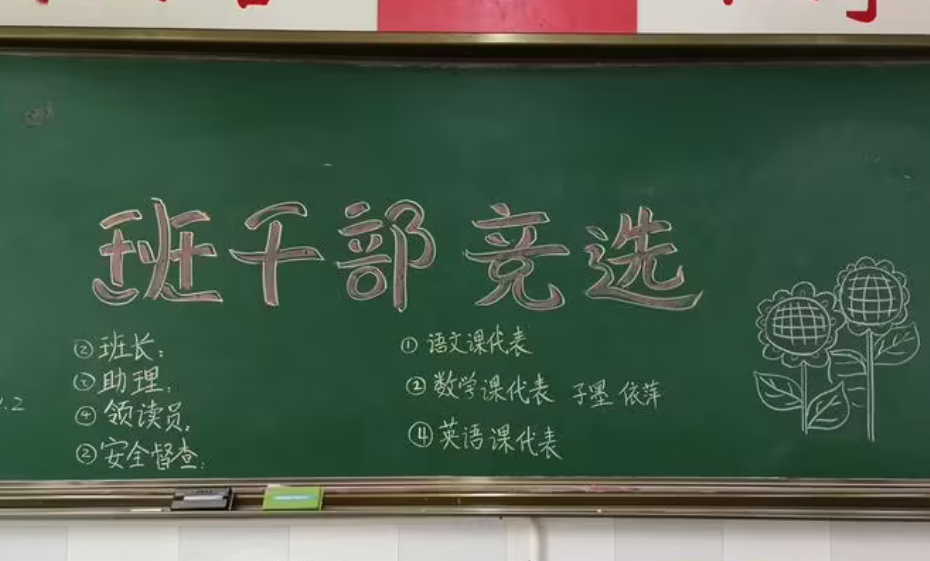 班干部竞选
②班长:
②助理:
④领读员:
②安全督查:
①语文课代表
②数学课代表 子墨 依萍
④英语课代表